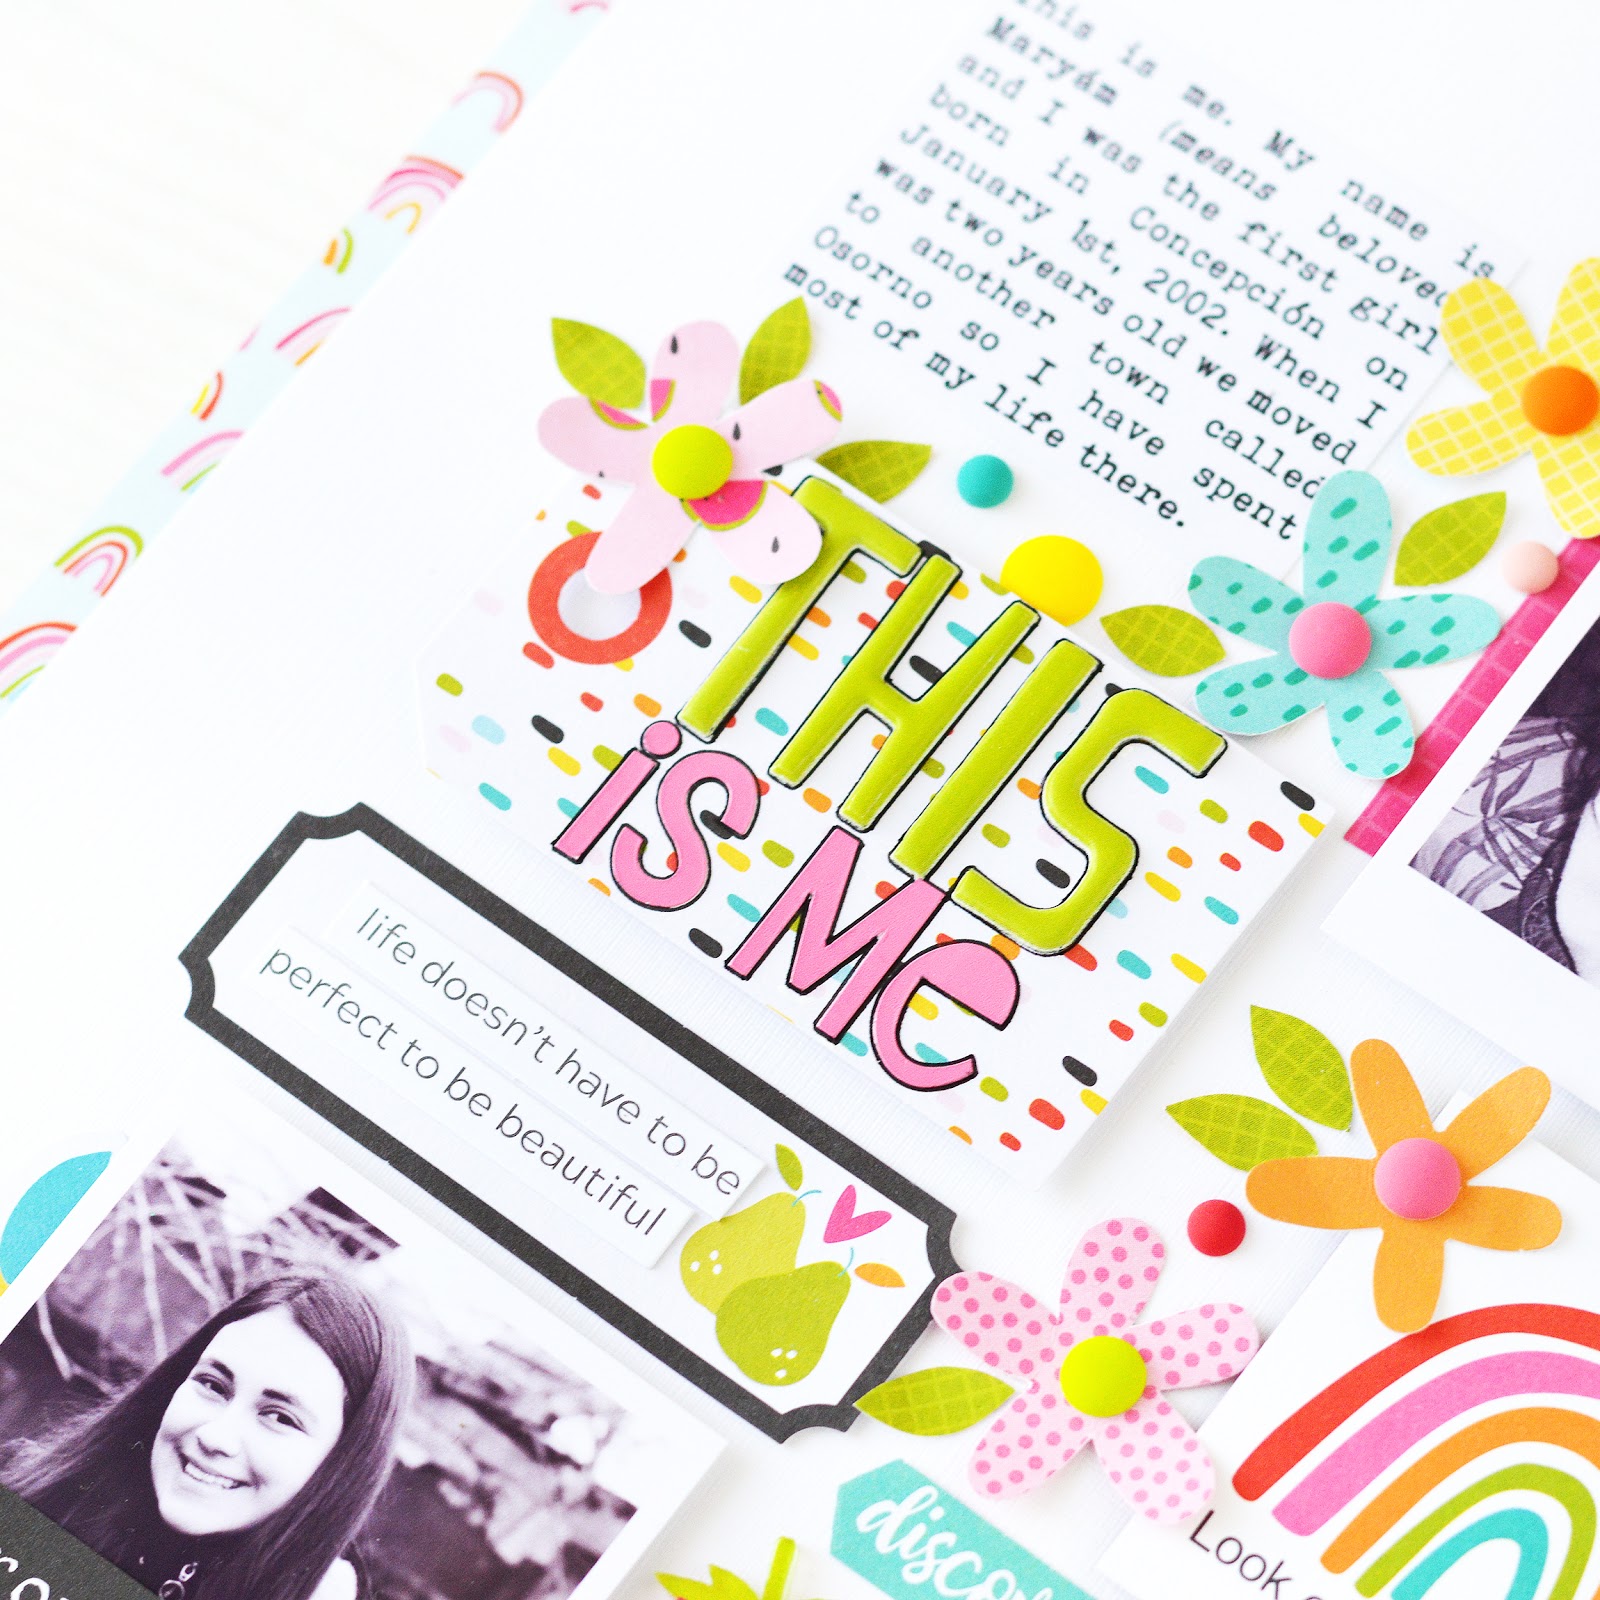 This is me. My name is
Maryám (means beloved
and I was the first girl
born in Concepción on
January 1st, 2002. When I
was two years old we moved
to another town called
Osorno so I have spent
most of my life there.
THIS
is Me
life doesn't have to be
perfect to be beautiful
Look